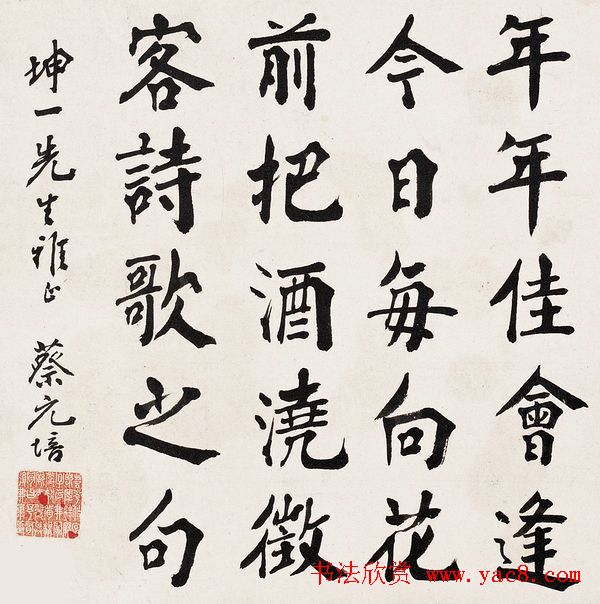 年年佳會逢
今日每向花
前把酒澆徵
客詩歌之句
坤一先生雅正 蔡元培
书法欣赏 www.yac8.com